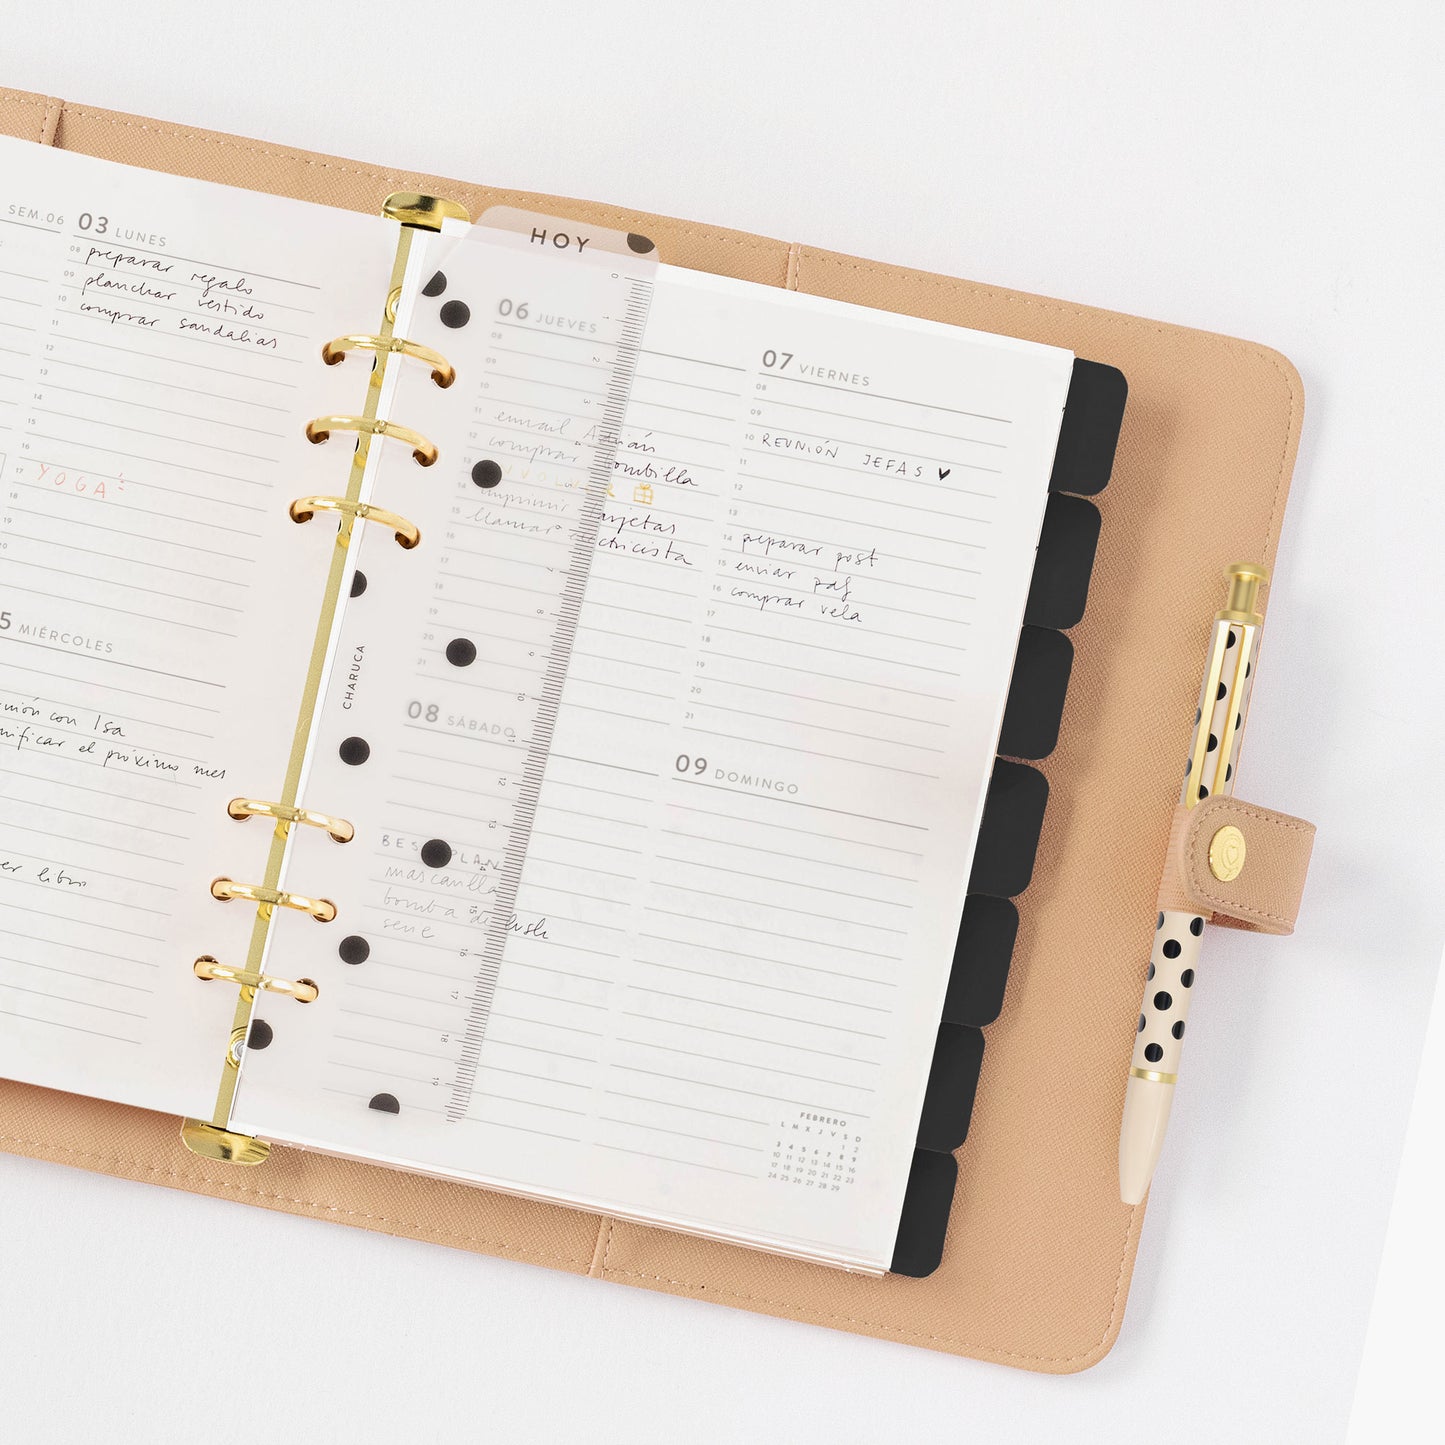 SEM.06
03 LUNES
08 preparar regalo
09 planchar vestido
10 comprar sandalias
11
12
13
14
15
16
17 YOGA
18
19
20
5 MIÉRCOLES
con Isa
el próximo mes
libro
HOY
CHARUCA
06 JUEVES
08
09
10
11 email Adrián
12 comprar bombilla
13
14 imprimir tarjetas
15 llamar electricista
16
17
18
19
20
21
07 VIERNES
08
09
10 REUNIÓN JEFAS ♥
11
12
13
14 preparar post
15 enviar pdf
16 comprar vela
17
18
19
20
21
08 SÁBADO
BEST PLAN
mascarilla
bomba de lush
serie
09 DOMINGO
FEBRERO
L M X J V S D
1 2
3 4 5 6 7 8 9
10 11 12 13 14 15 16
17 18 19 20 21 22 23
24 25 26 27 28 29
0
1
2
3
4
7
8
9
10
11
12
13
14
15
16
17
18
19